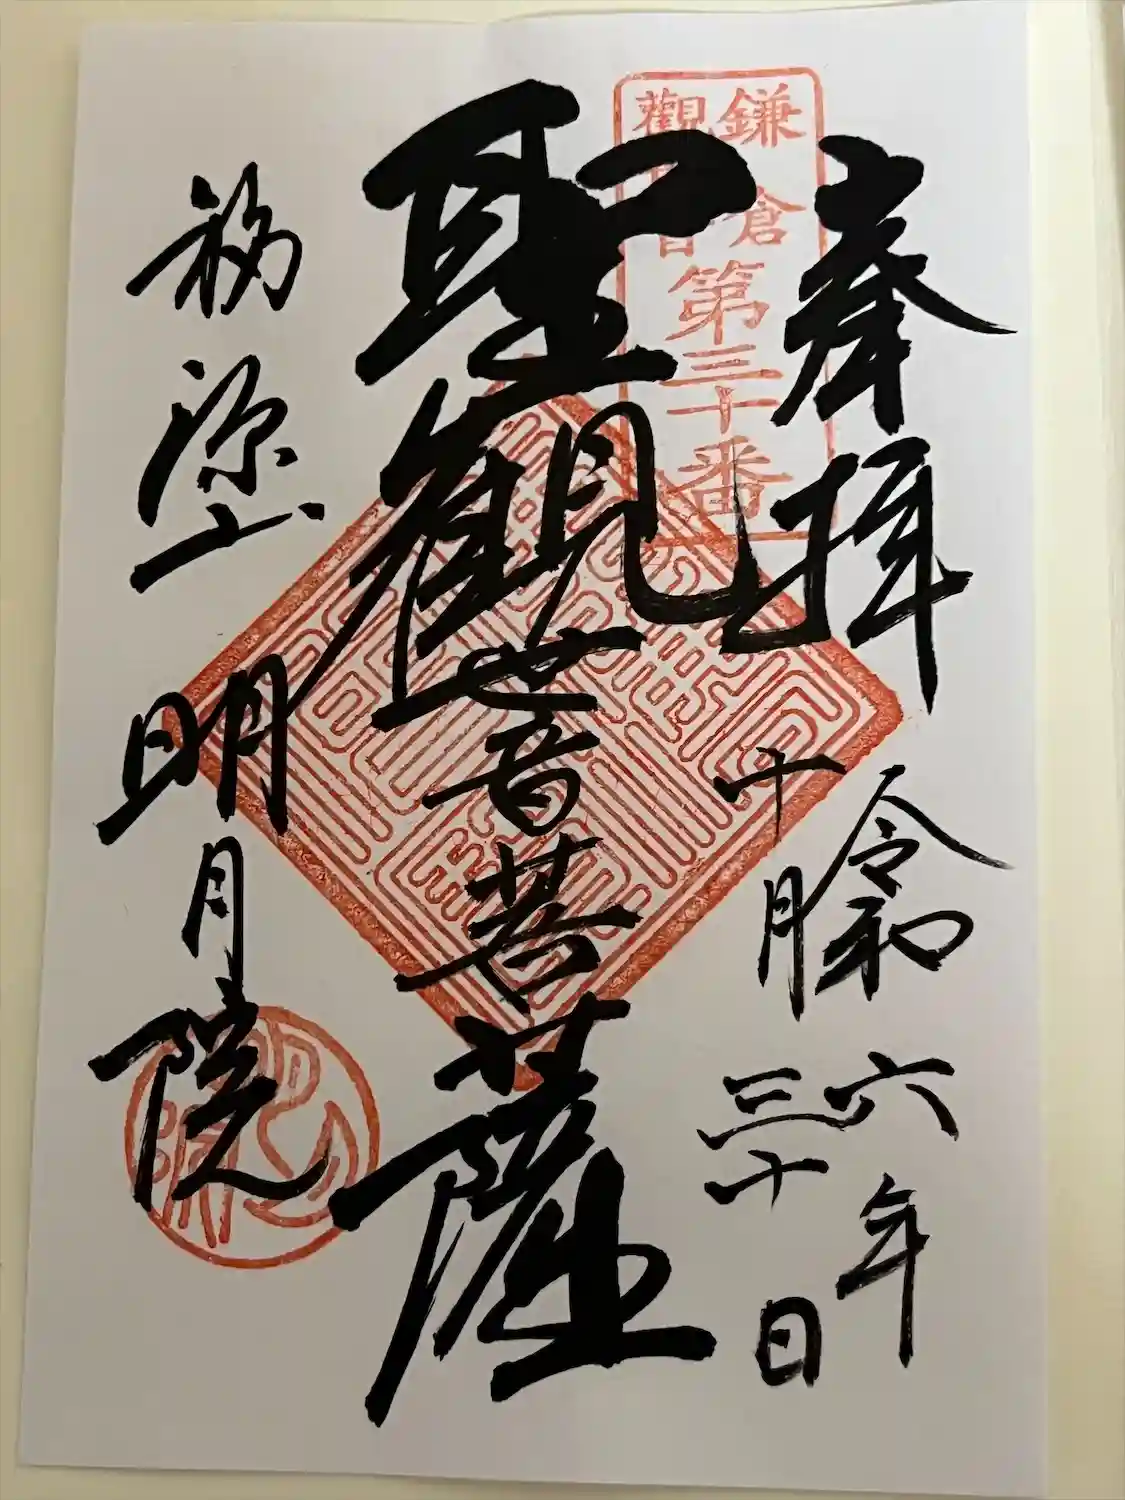 奉拝
令和六年
十月三十日
鎌倉
觀音
第三十番
聖観世音菩薩
福源山
明月院